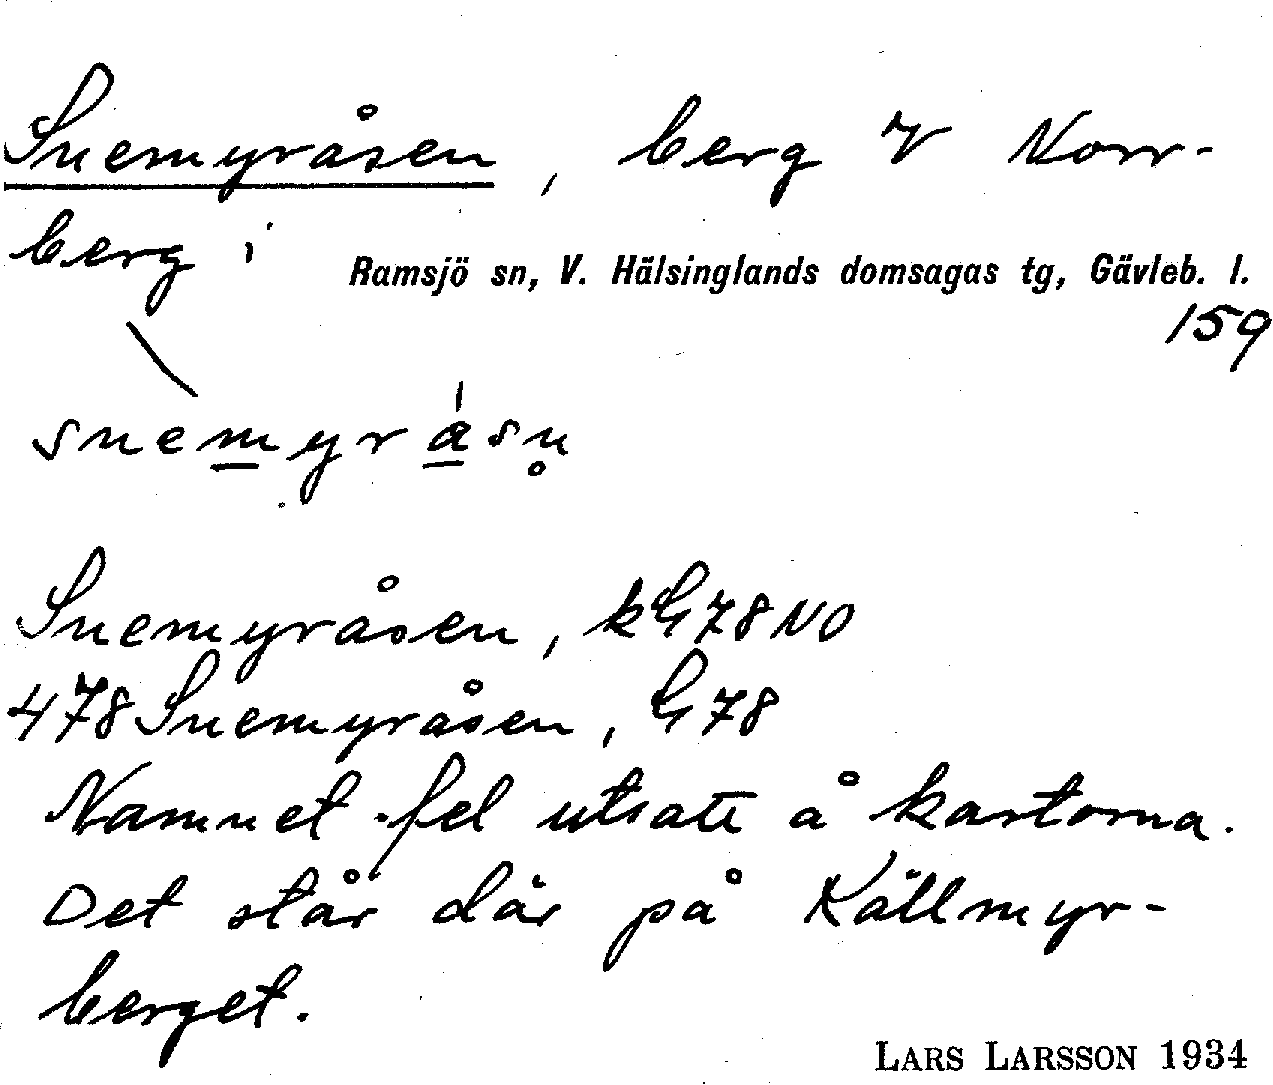 Snemyråsen, berg V Norr-
berg i
Ramsjö sn, V. Hälsinglands domsagas tg, Gävleb. l.
159
snemyråsn̥
Snemyråsen, kG78NO
478 Snemyråsen, G78
Namnet fel utsatt å kartorna.
Det står där på Källmyr-
berget.
LARS LARSSON 1934